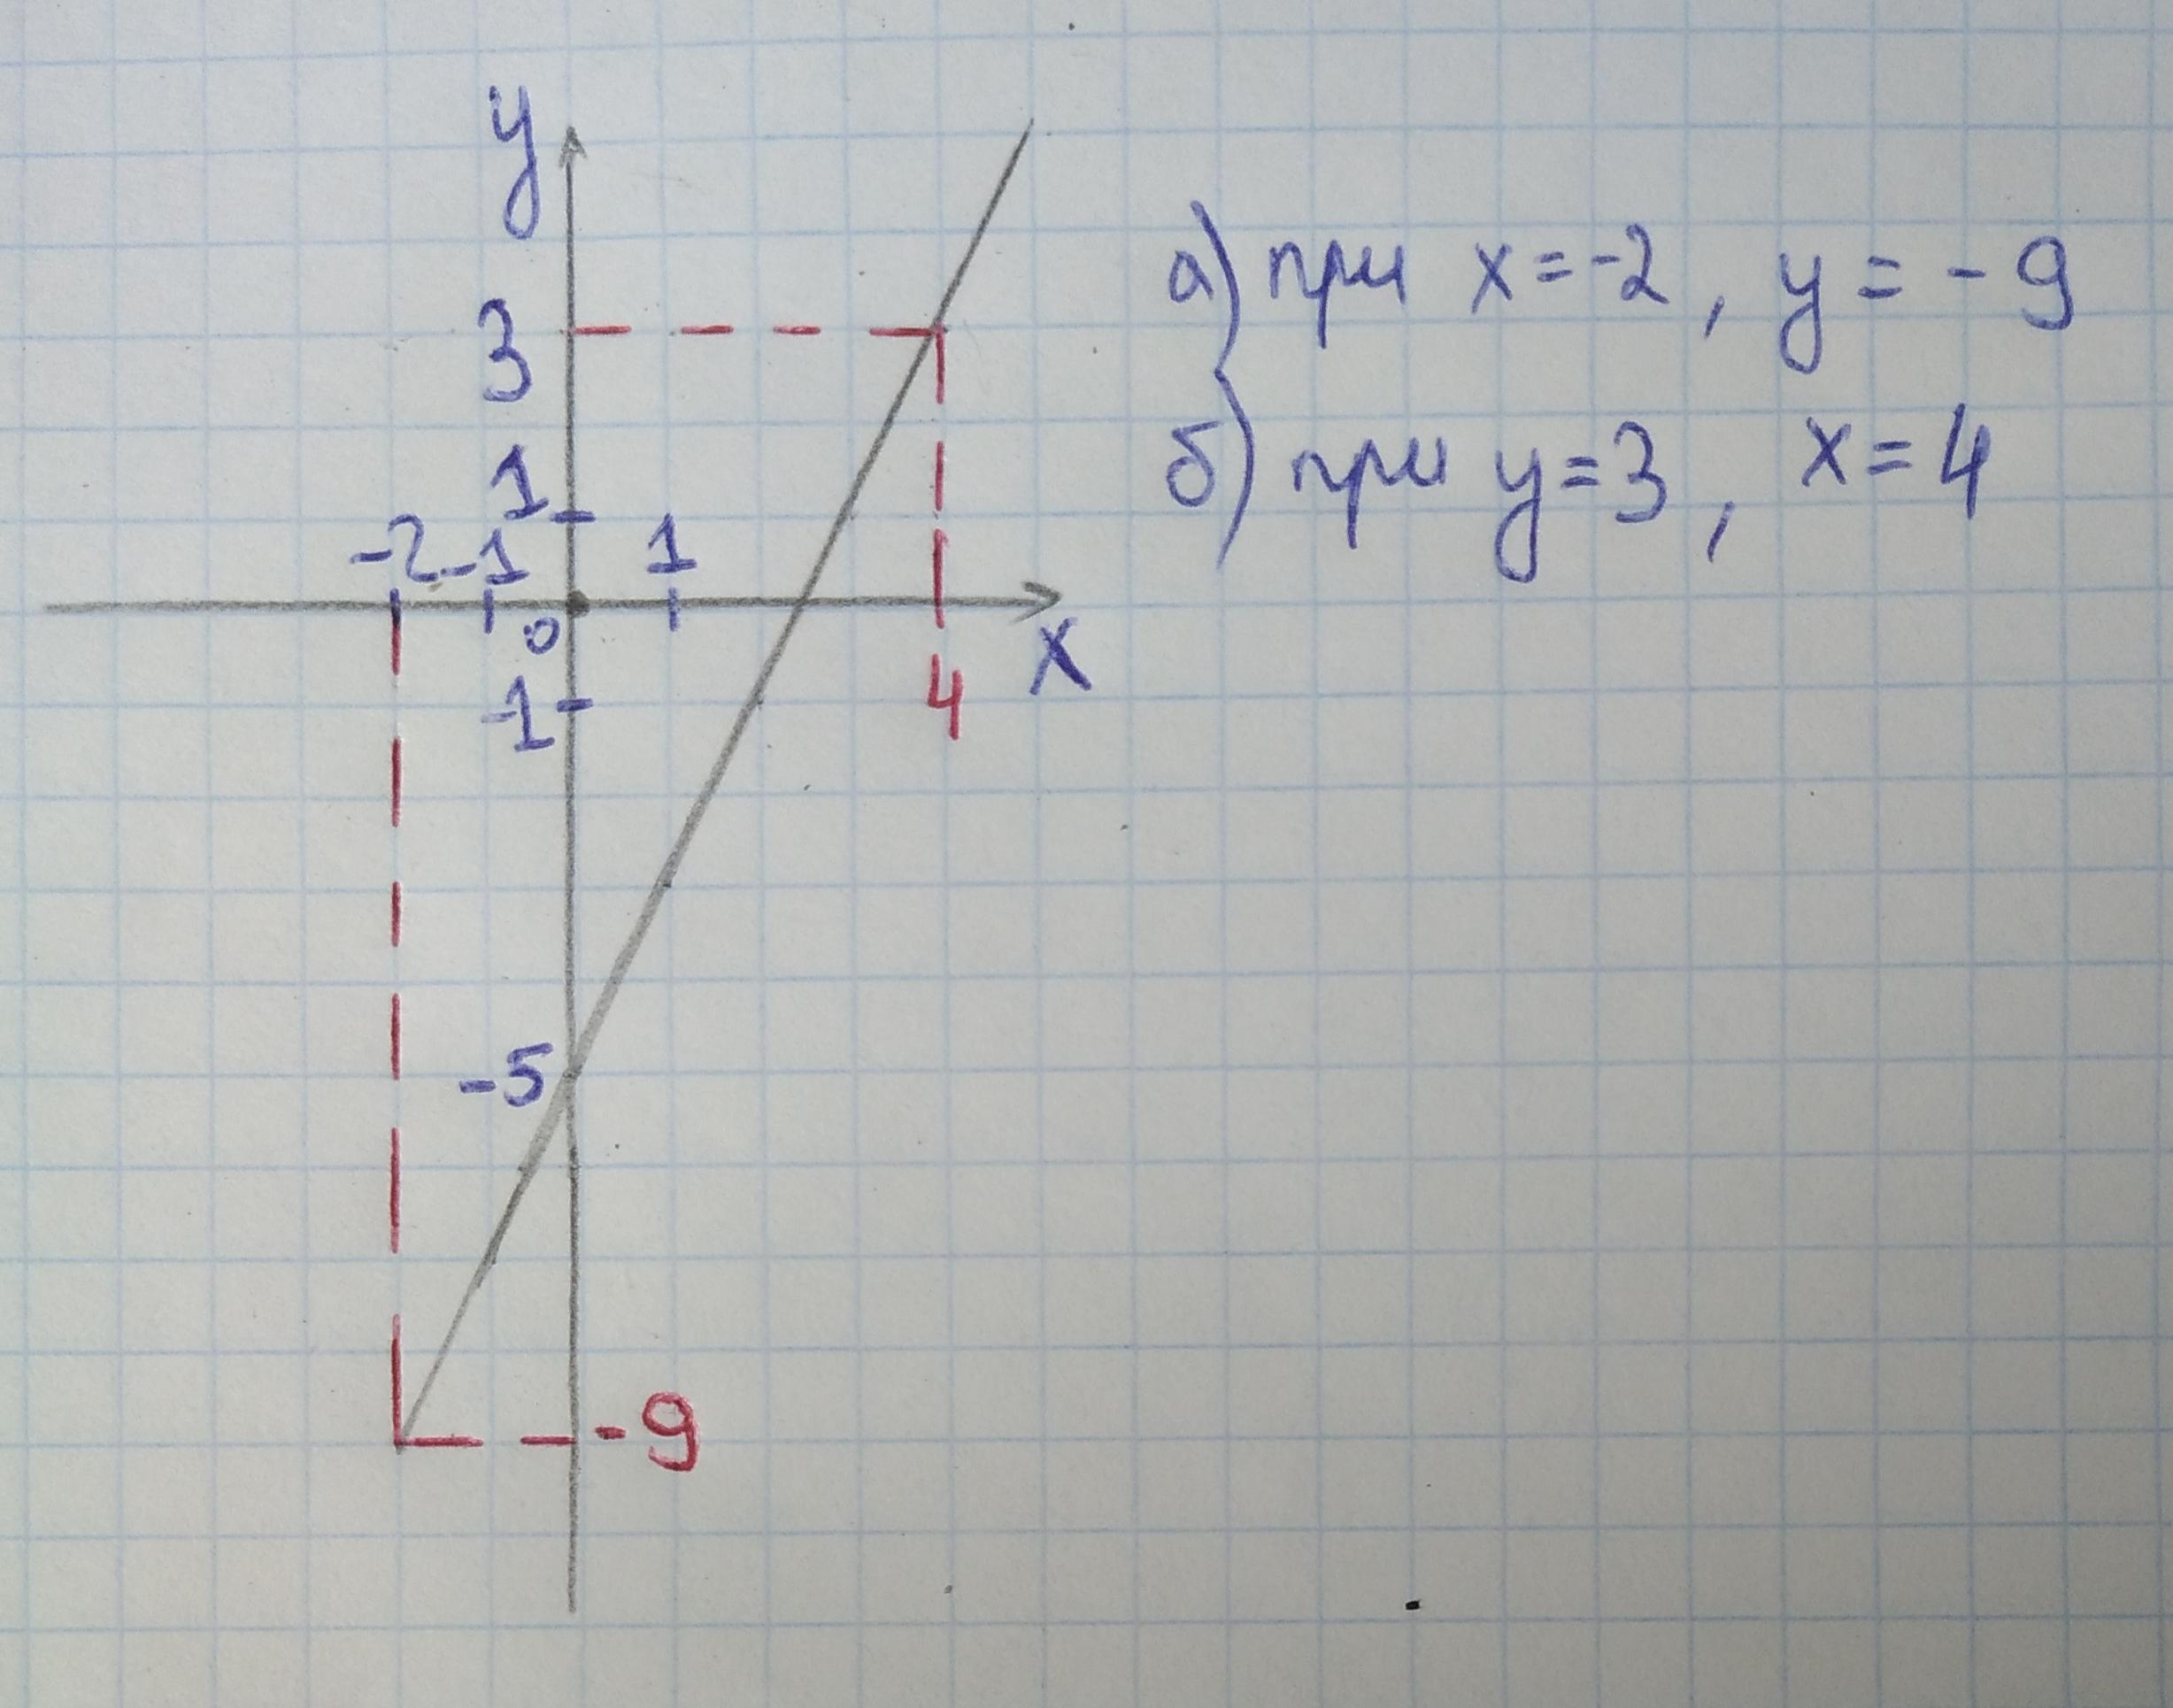 y
а) при x=-2, y=-9
3
б) при y=3, x=4
1
-2 -1 1
0
x
4
-1
-5
-9